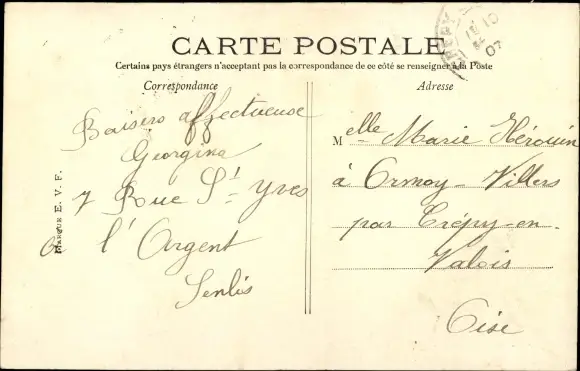 CARTE POSTALE
Certains pays étrangers n'acceptent pas la correspondance de ce côté se renseigner à la Poste
Correspondance
Adresse
Baisers affectueuse
Georgina
7 Rue St Yves
à l'Argent
Senlis
Melle Marie Hérouin
à Ormoy-Villers
par Crépy-en-
Valois
Oise
MARQUE E. V. F.
07